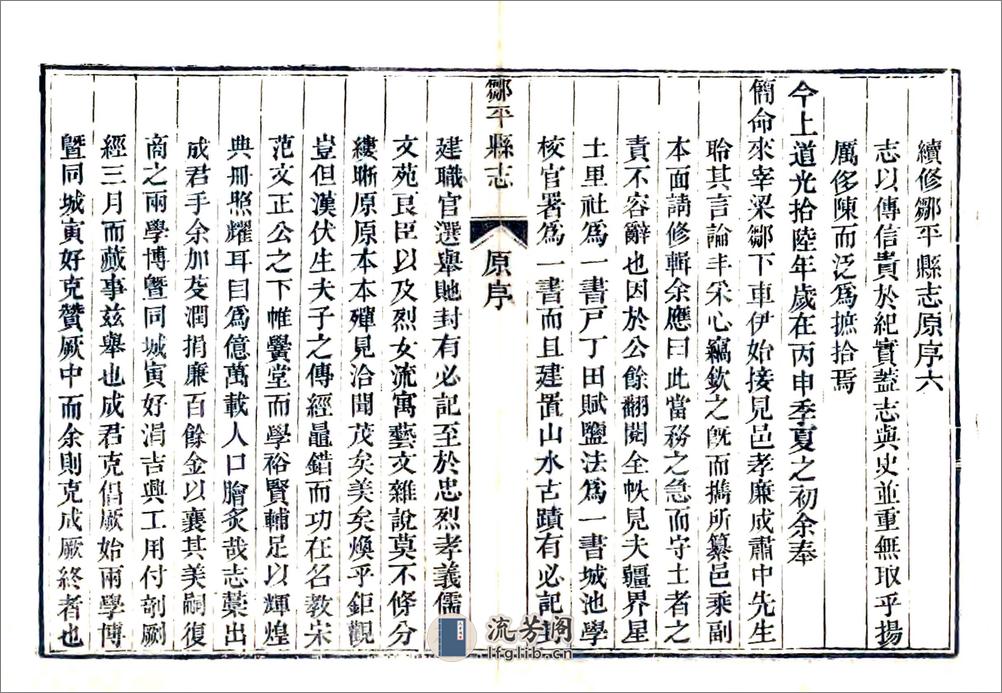 續修鄒平縣志原序六
志以傳信貴於紀實蓋志與史並重無取乎揚
厲侈陳而泛爲摭拾焉
今上道光拾陸年歲在丙申季夏之初余奉
簡命來宰梁鄒下車伊始接見邑孝廉成肅中先生
聆其言論丰采心竊欽之旣而擕所纂邑乘副
本面請修輯余應曰此當務之急而守土者之
責不容辭也因於公餘翻閱全帙見夫疆界星
土里社爲一書戸丁田賦鹽法爲一書城池學
校官署爲一書而且建置山水古蹟有必記封
鄒平縣志
原序
建職官選舉貤封有必記至於忠烈孝義儒
文苑艮臣以及烈女流寓藝文雜說莫不條分
縷晰原原本本殫見洽聞茂矣美矣煥乎鉅觀
豈但漢伏生夫子之傳經鼂錯而功在名教宋
范文正公之下帷黌堂而學裕賢輔足以輝煌
典冊照耀耳目爲億萬載人口膾炙哉志藁出
成君手余加芟潤捐廉百餘金以襄其美嗣復
商之兩學博曁同城寅好涓吉興工用付剞劂
經三月而蕆事兹舉也成君克倡厥始兩學博
曁同城寅好克贊厥中而余則克成厥終者也
流芳閣
lfglib.cn